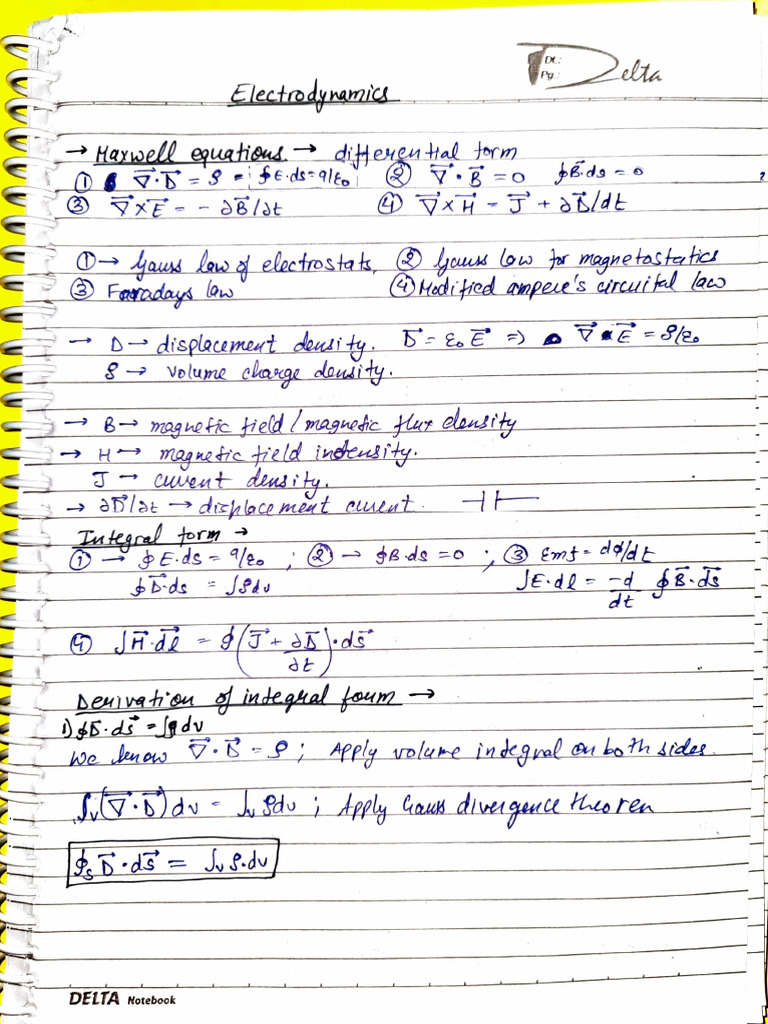 Delta
Dt.:
Pg.:
Electrodynamics
→ Maxwell equations → differential form
① ∇⃗·D⃗ = ρ = ∮E·ds = q/ε₀ ② ∇⃗·B⃗ = 0 ∮B·ds = 0
③ ∇⃗×E⃗ = -∂B⃗/∂t ④ ∇⃗×H⃗ = J⃗ + ∂D⃗/dt
① → Gauss law of electrostats, ② Gauss law for magnetostatics
③ Faradays law ④ Modified ampere's circuital law
→ D → displacement density. D⃗ = ε₀E⃗ ⇒ ∇⃗·E⃗ = ρ/ε₀
ρ → volume charge density.
→ B → magnetic field/magnetic flux density
→ H → magnetic field intensity.
J → current density.
→ ∂D⃗/∂t → displacement current.
Integral form →
① → ∮E·ds = q/ε₀ ; ② → ∮B·ds = 0 ; ③ Emf = dϕ/dt
∮D⃗·ds = ∫ρdv ∫E·dl = -d/dt ∮B⃗·ds⃗
④ ∫H⃗·dl⃗ = ∮(J⃗ + ∂D⃗/∂t)·ds⃗
Derivation of integral form →
1) ∮D⃗·ds⃗ = ∫ρdv
We know ∇⃗·D⃗ = ρ ; Apply volume integral on both sides.
∫ᵥ(∇⃗·D⃗)dv = ∫ᵥρdv ; Apply Gauss divergence theorem
∮ₛD⃗·ds⃗ = ∫ᵥρ·dv
DELTA Notebook